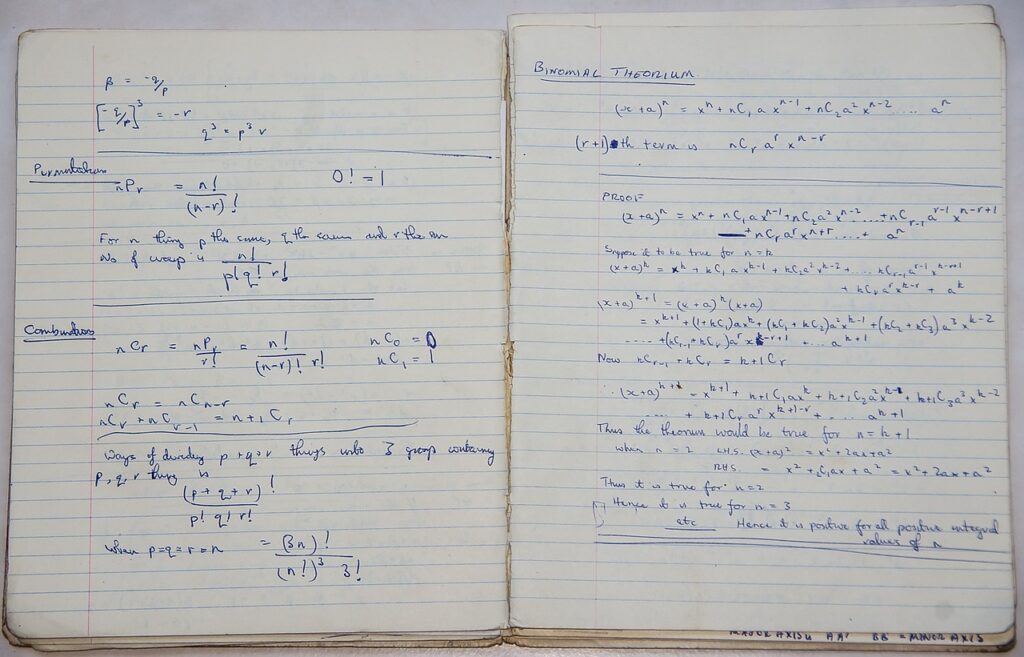 β = -q/p
[-q/p]³ = -r
q³ = p³ r
Permutations
nPr = n!/(n-r)!
0! = 1
For n things p the same, q the same and r the same
No of ways is n!/p! q! r!
Combinations
nCr = nPr/r! = n!/(n-r)! r!
nC0 = 0
nC1 = 1
nCr = nCn-r
nCr + nCr-1 = n+1Cr
Ways of dividing p+q+r things into 3 groups containing
p, q, r things is
(p+q+r)!/p! q! r!
When p=q=r=n = (3n)!/(n!)³ 3!
BINOMIAL THEORIUM
(x+a)ⁿ = xⁿ + nC₁ a xⁿ⁻¹ + nC₂a² xⁿ⁻² ..... aⁿ
(r+1)th term is nCr aʳ xⁿ⁻ʳ
PROOF
(x+a)ⁿ = xⁿ + nC₁axⁿ⁻¹ + nC₂a²xⁿ⁻² ..... + nCr-1 aʳ⁻¹ xⁿ⁻ʳ⁺¹
+ nCr aʳxⁿ⁺ʳ .... + aⁿ
Suppose it to be true for n=k
(x+a)ᵏ = xᵏ + kC₁ a xᵏ⁻¹ + kC₂a² xᵏ⁻² + .... kCr-1 aʳ⁻¹xᵏ⁻ʳ⁺¹
+ kCr aʳxᵏ⁻ʳ + aᵏ
(x+a)ᵏ⁺¹ = (x+a)ᵏ(x+a)
= xᵏ⁺¹ + (1+kC₁)axᵏ + (kC₁ + kC₂)a²xᵏ⁻¹ + (kC₂ + kC₃)a³xᵏ⁻²
..... + (kCr-1 + kCr)aʳ xᵏ⁻ʳ⁺¹ .... aᵏ⁺¹
Now kCr-1 + kCr = k+1Cr
∴ (x+a)ᵏ⁺¹ = xᵏ⁺¹ + k+1C₁axᵏ + k+1C₂a²xᵏ⁻¹ + k+1C₃a³xᵏ⁻²
..... + k+1Cr aʳ xᵏ⁺¹⁻ʳ + .... aᵏ⁺¹
Thus the theorium would be true for n=k+1
When n=2 L.H.S. (x+a)² = x²+2ax+a²
R.H.S. = x² + ₂C₁ax + a² = x²+2ax+a²
Thus it is true for n=2
Hence it is true for n=3
etc Hence it is positive for all positive integral
values of n
MAJOR AXIS AA' BB' = MINOR AXIS